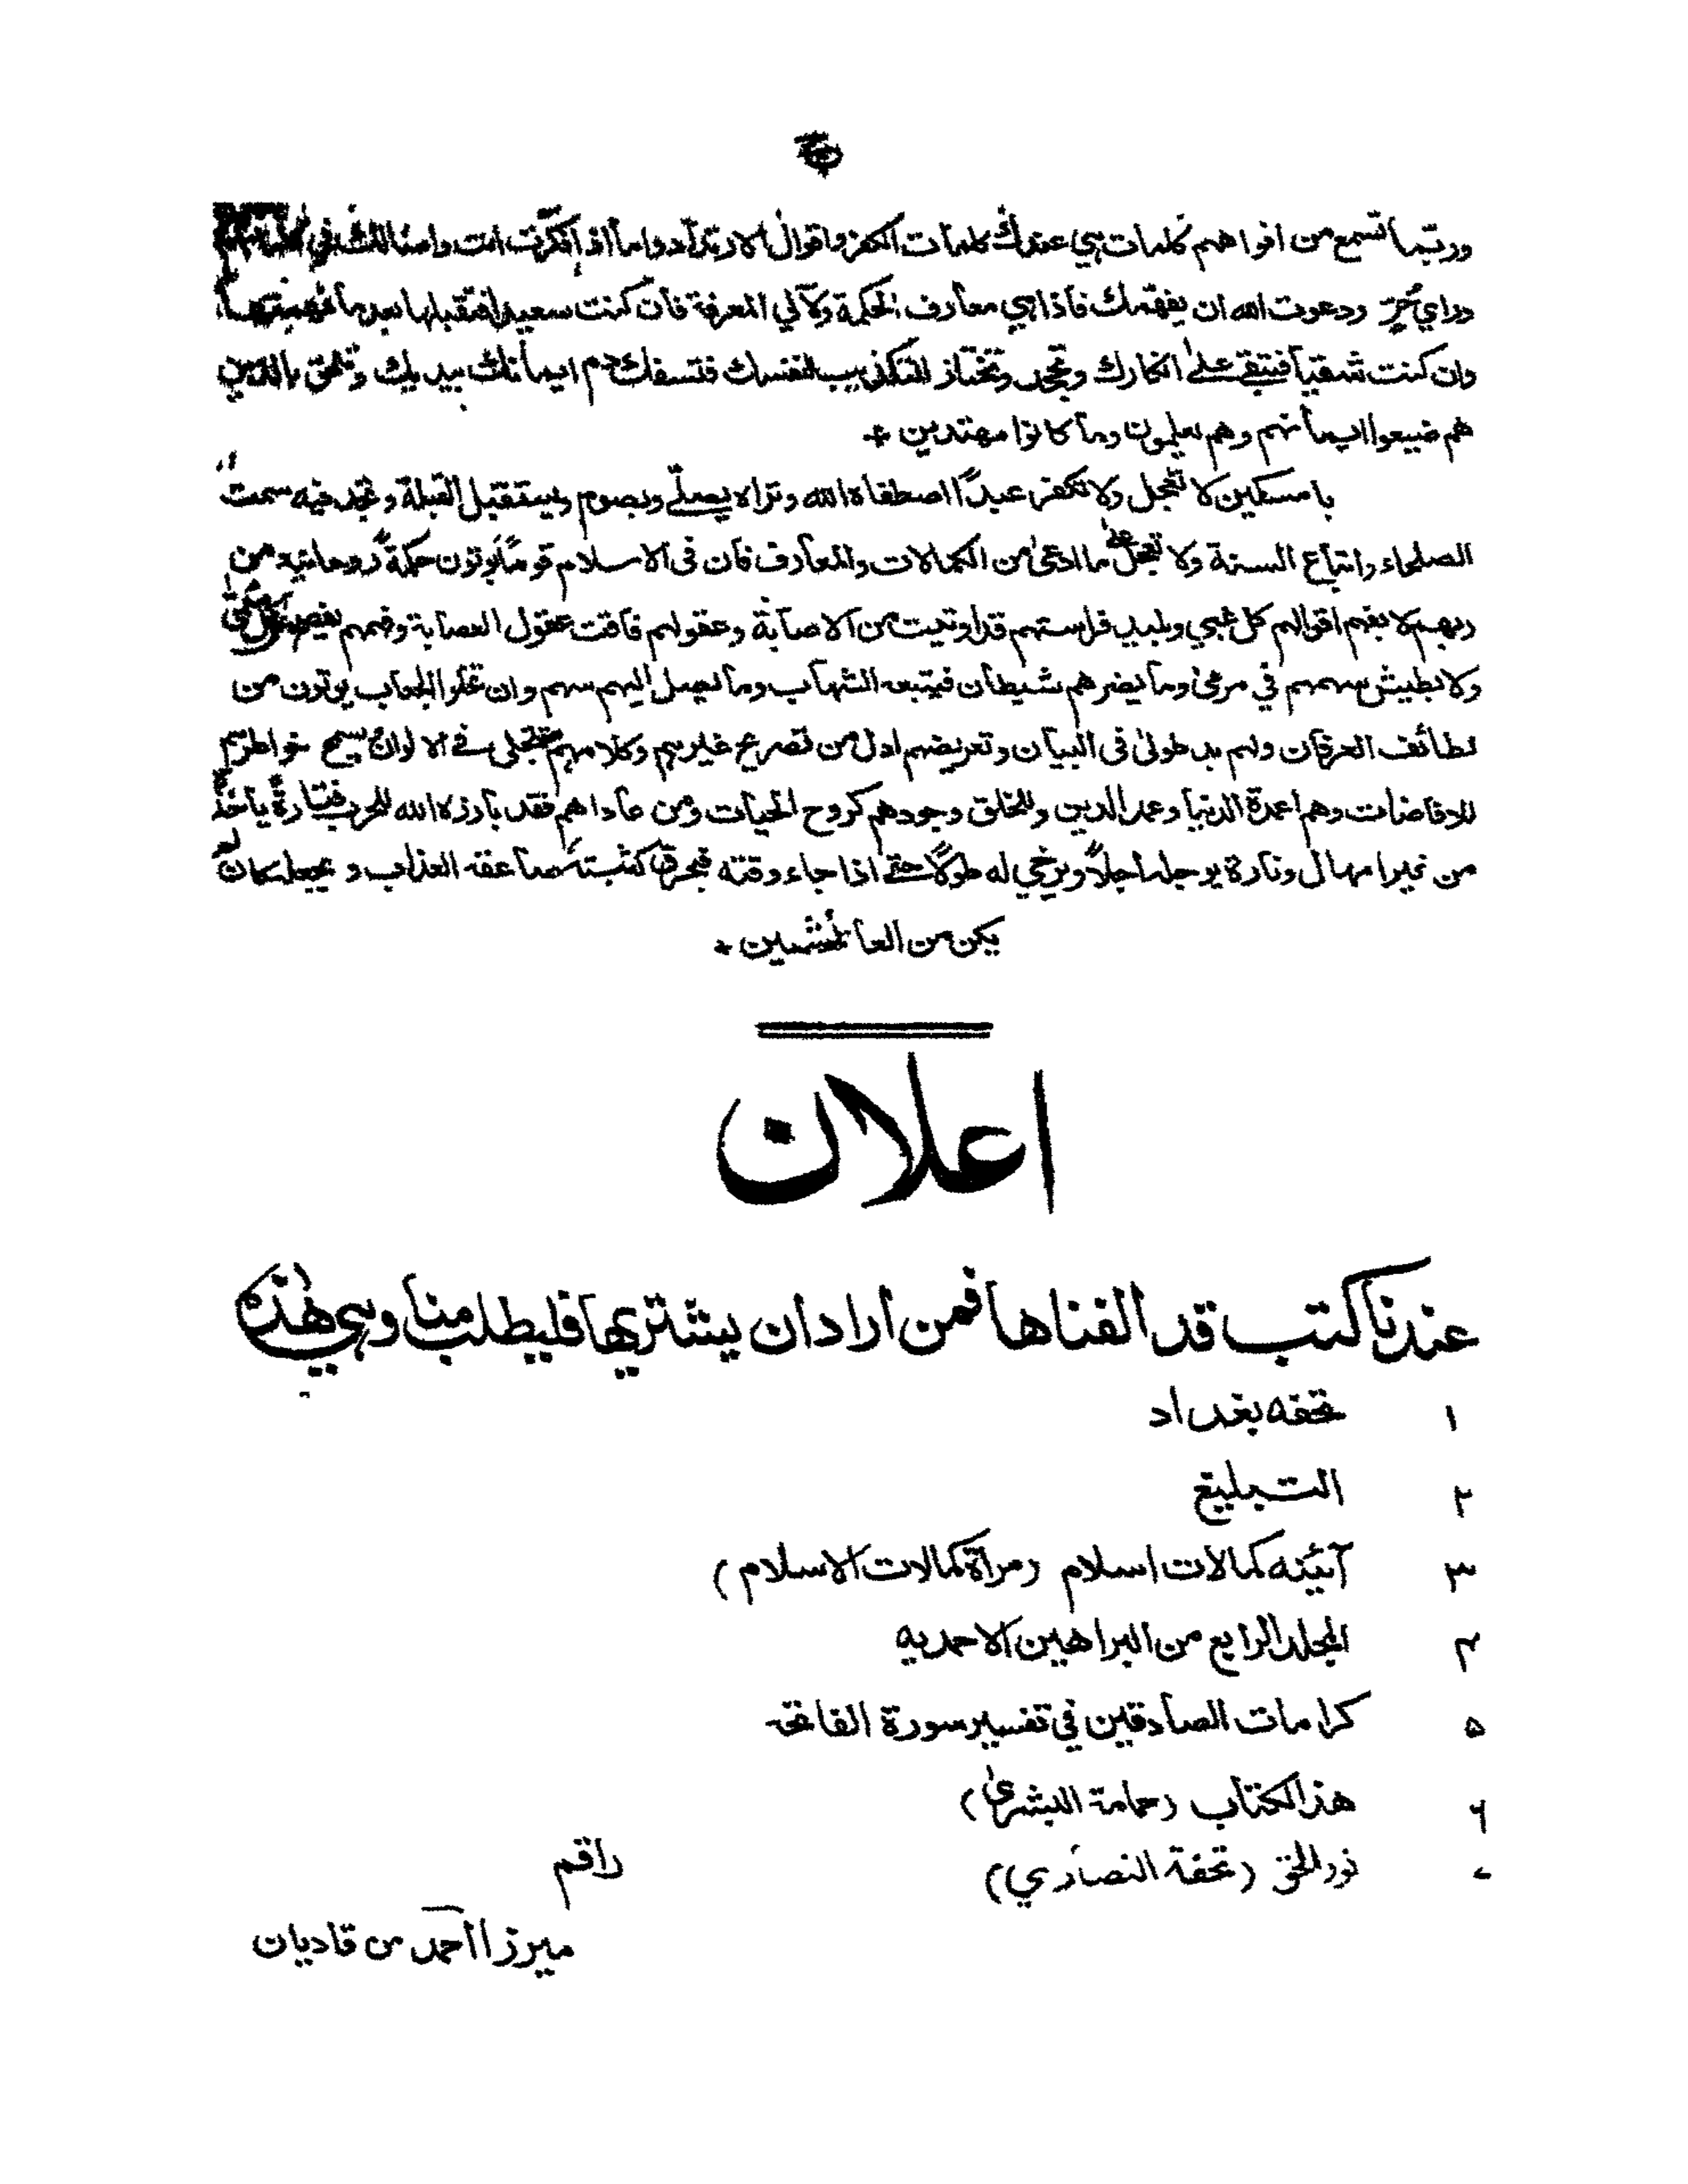 وربّما تسمع من افواههم كلمات هي عندك كلمات الكفر واقوال الارتداد واما اذا فكرت انت وامثالك في
ورأي حُرّ ودعوت الله ان يفهمك فاذا هي معارف الحكمة ولآلي المعرفة فان كنت سعيدا فتقبلها بعد ما
وان كنت شقيا فتبقى على انكارك وتجحد وتختار التكذيب لنفسك فتسفك دم ايمانك بيديك وتلحق بالذين
هم ضيعوا ايمانهم وهم يعلمون وما كانوا مهتدين +
يا مسكين لا تعجل ولا تكفر عبدًا اصطفاه الله وتراه يصلّى ويصوم ويستقبل القبلة وتجد فيه سمت
الصلحاء واتباع السنة ولا تعجل على ما ادعى من الكمالات والمعارف فان فى الاسلام قومًا يوتون حكمة روحانية من
ربهم لا يفهم اقوالهم كل غبي وبليد فراستهم قد اوتيت من الاصابة وعقولهم فاقت عقول العصابة وفهمهم
ولا يطيش سهمهم في مرمى وما يضرهم شيطان فيتبعه الشهاب وما يصل اليهم سهم وان تخلوا الجعاب يوتون من
لطائف العرفان ولهم يد طولى فى البيان وتعريضهم ادل من تصريح غيرهم وكلامهم يتجلى فى الالوان سمح خواطرهم
للافاضات وهم اعمدة الدنيا وعمد الدين وللخلق وجودهم كروح الحيات ومن عاداهم فقد بارزه الله للحرب فتارةً ياخذه
من غير امهال وتارة يوجله اجلًا ويرخي له طولًا حتى اذا جاء وقته فيحرق صاعقة العذاب و يجعله كان لم
يكن من العائشين +
اعلان
عندنا كتب قد الفناها فمن اراد ان يشتريها فليطلب منا وهي هذه
۱ تحفه بغداد
۲ التبليغ
۳ آئينه كمالات اسلام (مرآة كمالات الاسلام)
۴ المجلد الرابع من البراهين الاحمديه
۵ كرامات الصادقين في تفسير سورة الفاتحة
۶ هذا الكتاب (حمامة البشرى)
۷ نور الحق (تحفة النصارى)
راقم
ميرزا احمد من قاديان